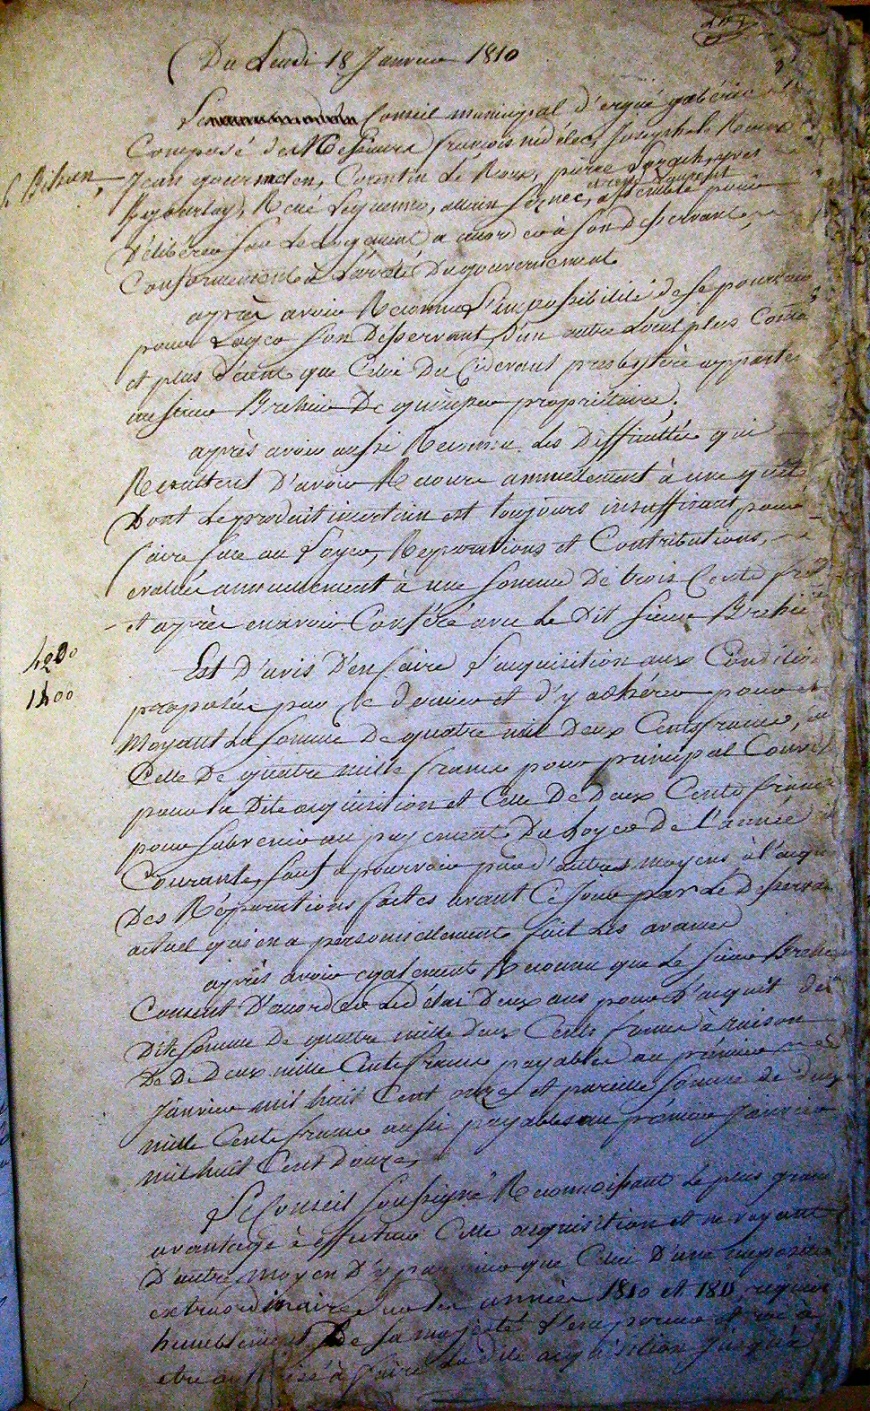 Du Jeudi 18 Janvier 1810
Le Conseil municipal d'ergué gabéric
Composé des Messieurs françois nédélec, Joseph le Roux
Le Bihan, Jean gourmelen, Corentin Le Roux, pierre
Rigourlay, René Leguenno, alain assemblé pour
délibérer sur Le Logement a accorder à Son Desservant,
Conformement à L'arrêté Du gouvernement
après avoir Reconnu L'impossibilité de Se pourvoir
pour Loger Son Desservant, D'un autre Local plus
et plus décent que Celui Du Cidevant presbytère
au Sieur Brehier De quimper propriétaire.
après avoir aussi Reconnu Les Difficultés qui
Resultent D'avoir Recours annuellement à une quête
Dont Le produit incertain est toujours insuffisant pour
faire face au Loyer, Reparations et Contributions,
evalué annuellement à une Somme De trois Cents
et après en avoir Conféré avec Le Dit Sieur Brehier
4200
Est D'avis D'en faire L'acquisition aux Condition
1400
proposées par ce dernier et d'y adhérer pour et
Moyant La Somme De quatre mil Deux Cents francs,
Celle De quatre mille francs pour principal
pour la Dite acquisition et Celle De Deux Cents francs
pour Subvenir au payement Du Loyer De l'année
Courante, Sauf a pourvoir par d'autres moyens à l'acquit
Des Réparations faites avant Ce Jour par Le Desservant
actuel qui en a personnellement fait Les avances
après avoir egalement Reconnu que Le Sieur Brehier
Consent D'accorder Le délai Deux ans pour L'acquit
Dite Somme De quatre mille Deux Cents francs à raison
De De Deux mille Cents francs payables au prémier
Janvier mil huit Cent onze et pareille Somme de deux
mille Cents francs aussi payables au prémier Janvier
mil huit Cent Douze,
Le Conseil Soussigné Reconnoissant Le plus grand
avantage à effectuer Cette acquisition et ne voyant
D'autre moyen D'y parvenir que Celui D'une imposition
extraordinaire Sur Les années 1810 et 1811
humblement De Sa majesté L'empereur et roi à
etre autorisé à faire La dite acquisition Jusqu'à